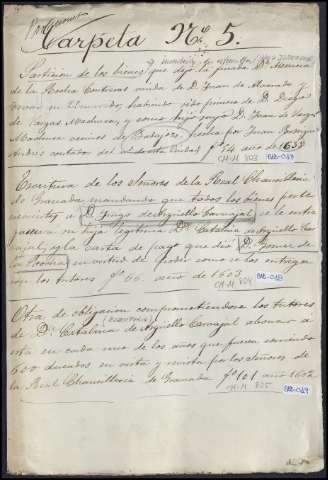 Carpeta Nº 5.
Particion de los bienes que dejó la finada Dª
de la Rocha Contreras viuda de D. Juan de Alvarado y
habiendo sido primera de D. Diego
de Vargas Machuca, y como hijo suyo D. Juan de Vargas
Machuca vecinos de Badajoz, hecha por Juan
Andres contador del de dicha Ciudad fº 74 año de 1632
CM.M 803 B12-049
Escritura de los Señores de la Real Chancilleria
de Granada mandando que todos los bienes
á D. Iñigo de Argüello Carvajal se le
á su hija legitima Dª Catalina de Argüello Car
vajal, y la carta de pago que dió D. Gomez de
la Rocha en virtud de poder como se los entrega
ron los tutores fº 66 año de 1603 B12-049
CM.M 804
Otra de obligacion comprometiendose los tutores
de Dª Catalina de Argüello Carvajal abonar á
esta en cada uno de los años que fuere
600 ducados en vista y revista por los Señores de
la Real Chancilleria de Granada fº 101 año 1602
CM.M 805 B12-049